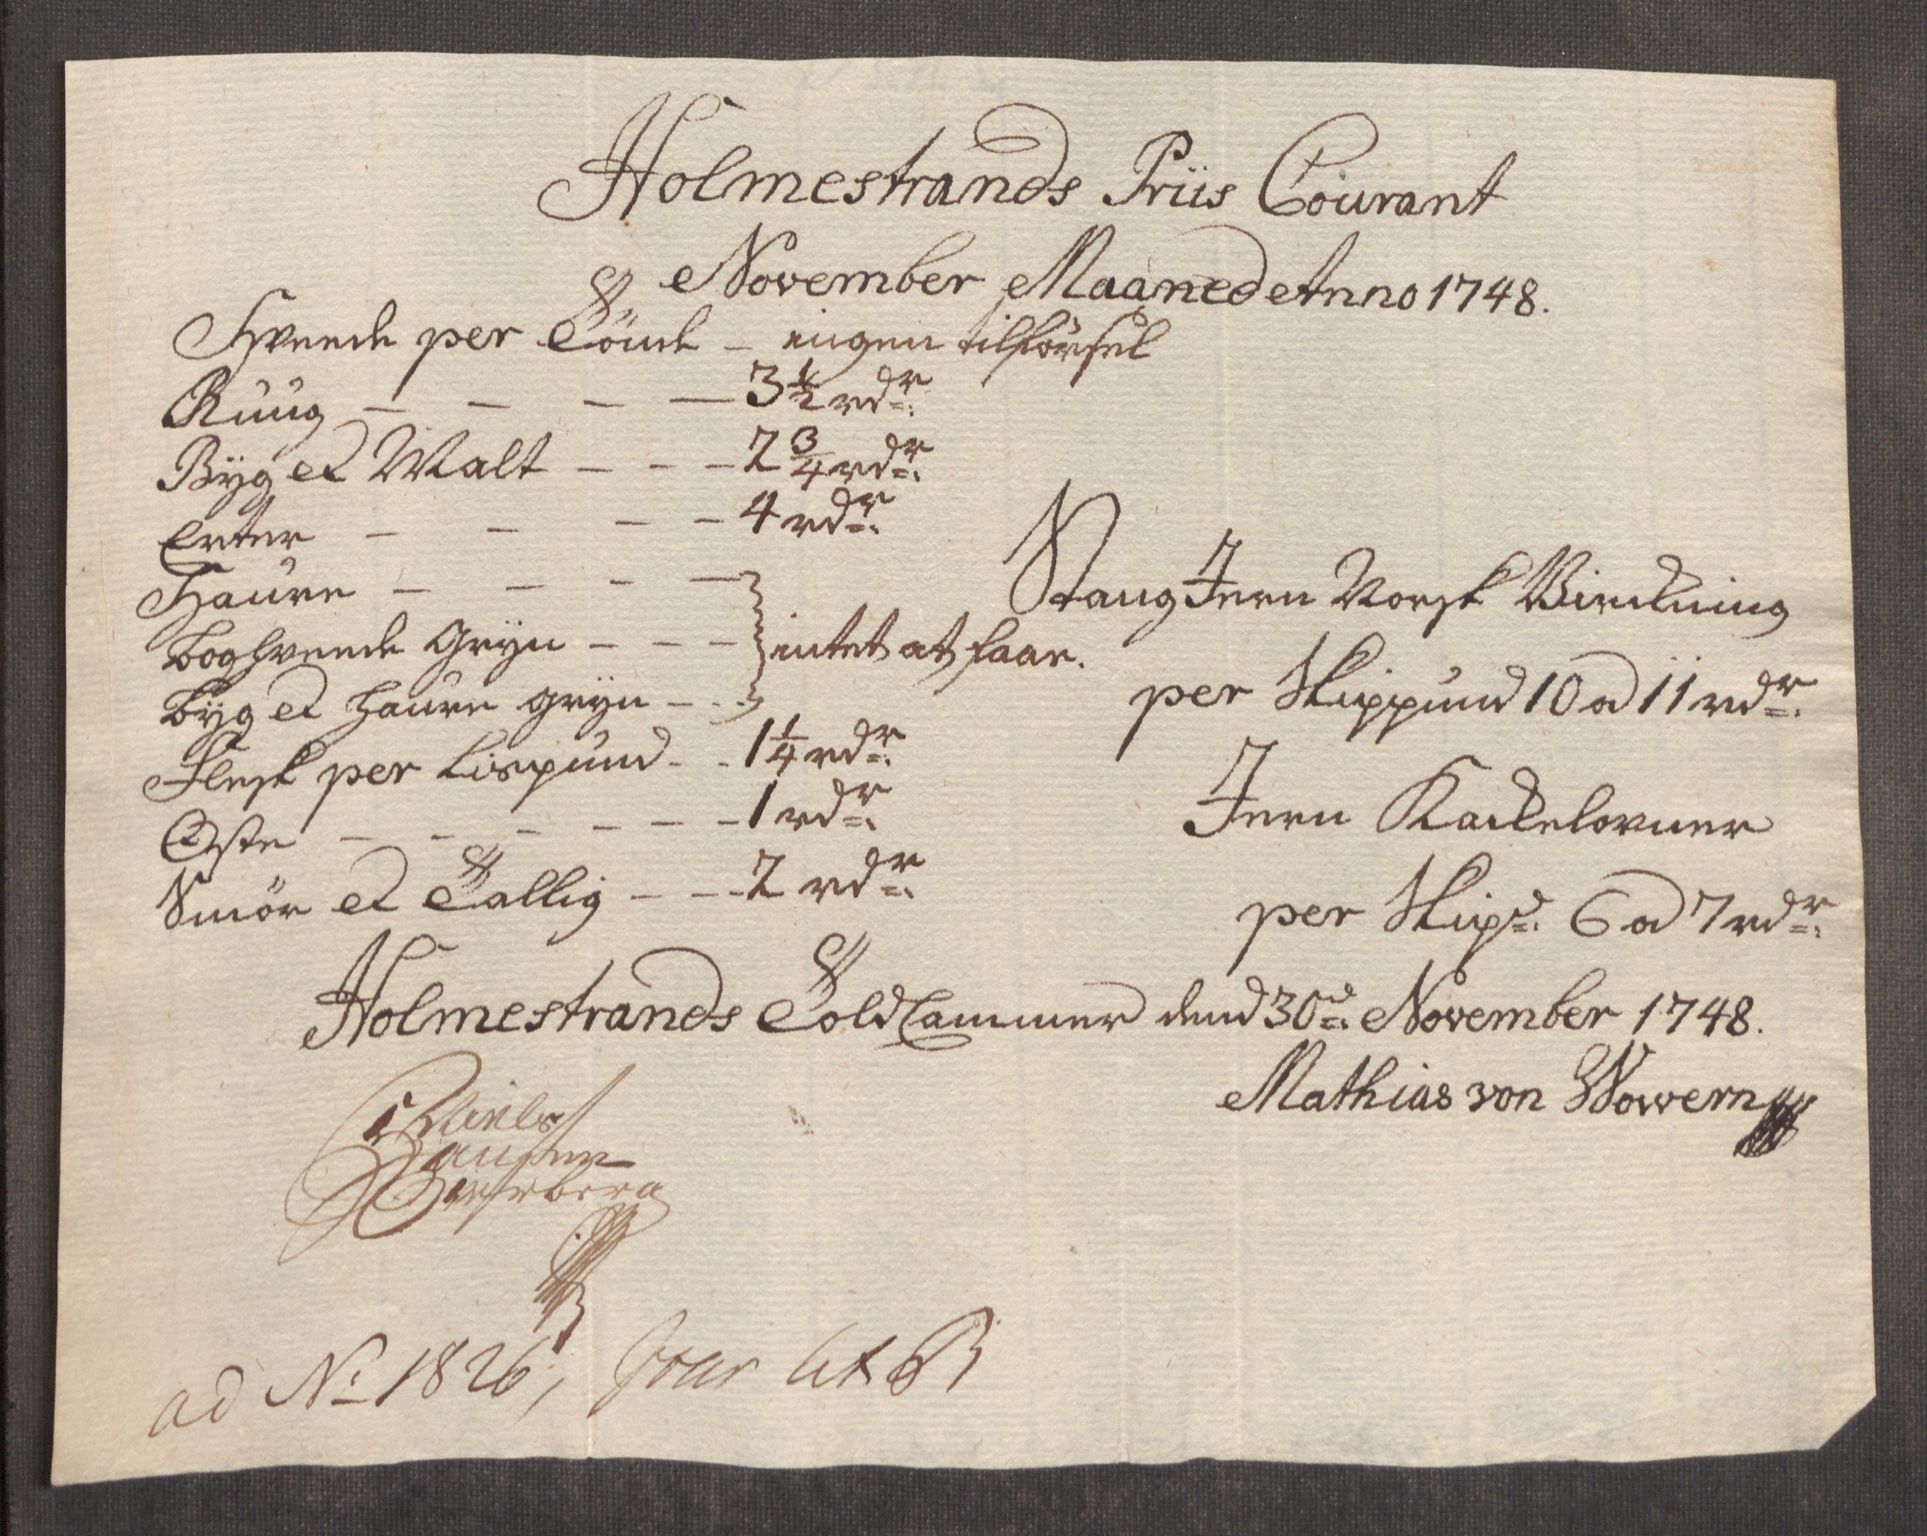 Holmestrands Priis Courant
November Maaned Anno 1748.
Hveede per Tönde – ingen tilförsel
Ruug – – – – 3 1/2 rdr.
Byg et Malt – – – 2 3/4 rdr.
Erter – – – – 4 rdr.
Haure – – – –
Boghveede Gryn – – –
intet at faae.
Byg et Haure gryn – – –
Flesk per Lispund – – 1 1/4 rdr.
Oste – – – – – – 1 rdr.
Smör et Tallig – – – 2 rdr.
Stang Jern Norsk Virckning
per Skippund 10 a 11 rdr.
Jern Kackelovner
per Skipd. 6 a 7 rdr.
Holmestrands Told Cammer dend 30d. November 1748.
Mathias von Wowern
Niels
Hansen
ad No. 1826, Lit B